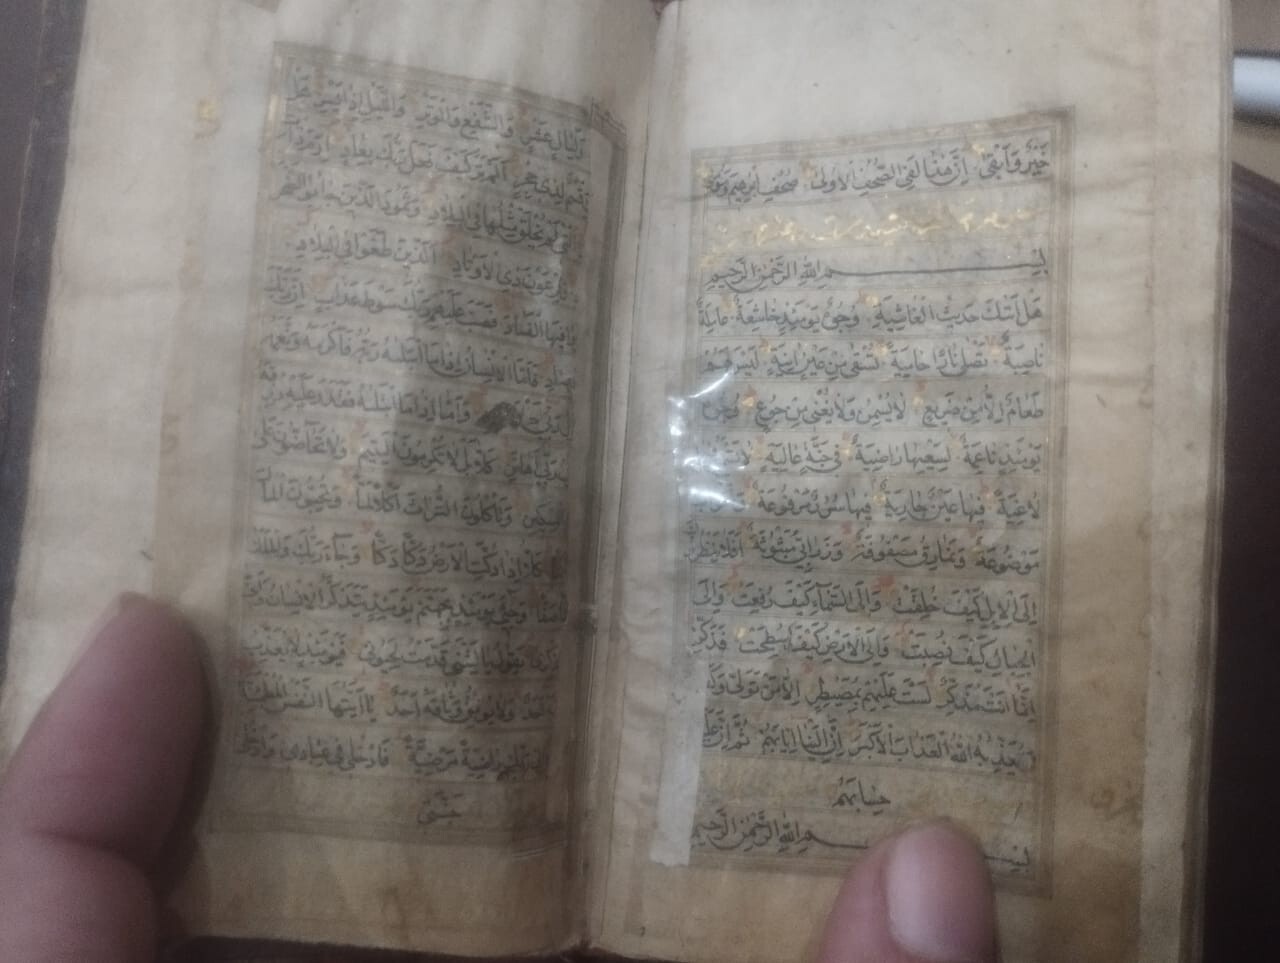 خَيْرٌ وَأَبْقَىٰ إِنَّ هَٰذَا لَفِي الصُّحُفِ الْأُولَىٰ صُحُفِ إِبْرَٰهِيمَ وَمُو
بِسْمِ اللَّهِ الرَّحْمَٰنِ الرَّحِيمِ
هَلْ أَتَىٰكَ حَدِيثُ الْغَاشِيَةِ وُجُوهٌ يَوْمَئِذٍ خَاشِعَةٌ عَامِلَةٌ
نَاصِبَةٌ تَصْلَىٰ نَارًا حَامِيَةً تُسْقَىٰ مِنْ عَيْنٍ آنِيَةٍ لَيْسَ لَهُمْ
طَعَامٌ إِلَّا مِنْ ضَرِيعٍ لَا يُسْمِنُ وَلَا يُغْنِي مِنْ جُوعٍ وُجُوهٌ
يَوْمَئِذٍ نَاعِمَةٌ لِسَعْيِهَا رَاضِيَةٌ فِي جَنَّةٍ عَالِيَةٍ لَا تَسْمَعُ
لَاغِيَةً فِيهَا عَيْنٌ جَارِيَةٌ فِيهَا سُرُرٌ مَرْفُوعَةٌ
مَوْضُوعَةٌ وَنَمَارِقُ مَصْفُوفَةٌ وَزَرَابِيُّ مَبْثُوثَةٌ أَفَلَا يَنْظُرُونَ
إِلَى الْإِبِلِ كَيْفَ خُلِقَتْ وَإِلَى السَّمَاءِ كَيْفَ رُفِعَتْ وَإِلَى
الْجِبَالِ كَيْفَ نُصِبَتْ وَإِلَى الْأَرْضِ كَيْفَ سُطِحَتْ فَذَكِّرْ
إِنَّمَا أَنْتَ مُذَكِّرٌ لَسْتَ عَلَيْهِمْ بِمُصَيْطِرٍ إِلَّا مَنْ تَوَلَّىٰ وَكَفَرَ
فَيُعَذِّبُهُ اللَّهُ الْعَذَابَ الْأَكْبَرَ إِنَّ إِلَيْنَا إِيَابَهُمْ ثُمَّ إِنَّ عَلَيْنَا
حِسَابَهُمْ
بِسْمِ اللَّهِ الرَّحْمَٰنِ الرَّحِيمِ
وَلَيَالٍ عَشْرٍ وَالشَّفْعِ وَالْوَتْرِ وَاللَّيْلِ إِذَا يَسْرِ هَلْ
قَسَمٌ لِذِي حِجْرٍ أَلَمْ تَرَ كَيْفَ فَعَلَ رَبُّكَ بِعَادٍ إِرَمَ ذَاتِ
الَّتِي لَمْ يُخْلَقْ مِثْلُهَا فِي الْبِلَادِ وَثَمُودَ الَّذِينَ جَابُوا الصَّخْرَ
وَفِرْعَوْنَ ذِي الْأَوْتَادِ الَّذِينَ طَغَوْا فِي الْبِلَادِ
فِيهَا الْفَسَادَ فَصَبَّ عَلَيْهِمْ رَبُّكَ سَوْطَ عَذَابٍ إِنَّ رَبَّكَ
فَأَمَّا الْإِنْسَانُ إِذَا مَا ابْتَلَىٰهُ رَبُّهُ فَأَكْرَمَهُ وَنَعَّمَهُ
وَأَمَّا إِذَا مَا ابْتَلَىٰهُ فَقَدَرَ عَلَيْهِ رِزْقَهُ
رَبِّي أَهَانَنِ كَلَّا بَلْ لَا تُكْرِمُونَ الْيَتِيمَ وَلَا تَحَاضُّونَ عَلَىٰ
الْمِسْكِينِ وَتَأْكُلُونَ التُّرَاثَ أَكْلًا لَمًّا وَتُحِبُّونَ الْمَالَ
كَلَّا إِذَا دُكَّتِ الْأَرْضُ دَكًّا دَكًّا وَجَاءَ رَبُّكَ وَالْمَلَكُ
وَجِيءَ يَوْمَئِذٍ بِجَهَنَّمَ يَوْمَئِذٍ يَتَذَكَّرُ الْإِنْسَانُ وَأَنَّىٰ
يَقُولُ يَا لَيْتَنِي قَدَّمْتُ لِحَيَاتِي فَيَوْمَئِذٍ لَا يُعَذِّبُ
أَحَدٌ وَلَا يُوثِقُ وَثَاقَهُ أَحَدٌ يَا أَيَّتُهَا النَّفْسُ الْمُطْمَئِنَّةُ
رَاضِيَةً مَرْضِيَّةً فَادْخُلِي فِي عِبَادِي وَادْخُلِي
جَنَّتِي